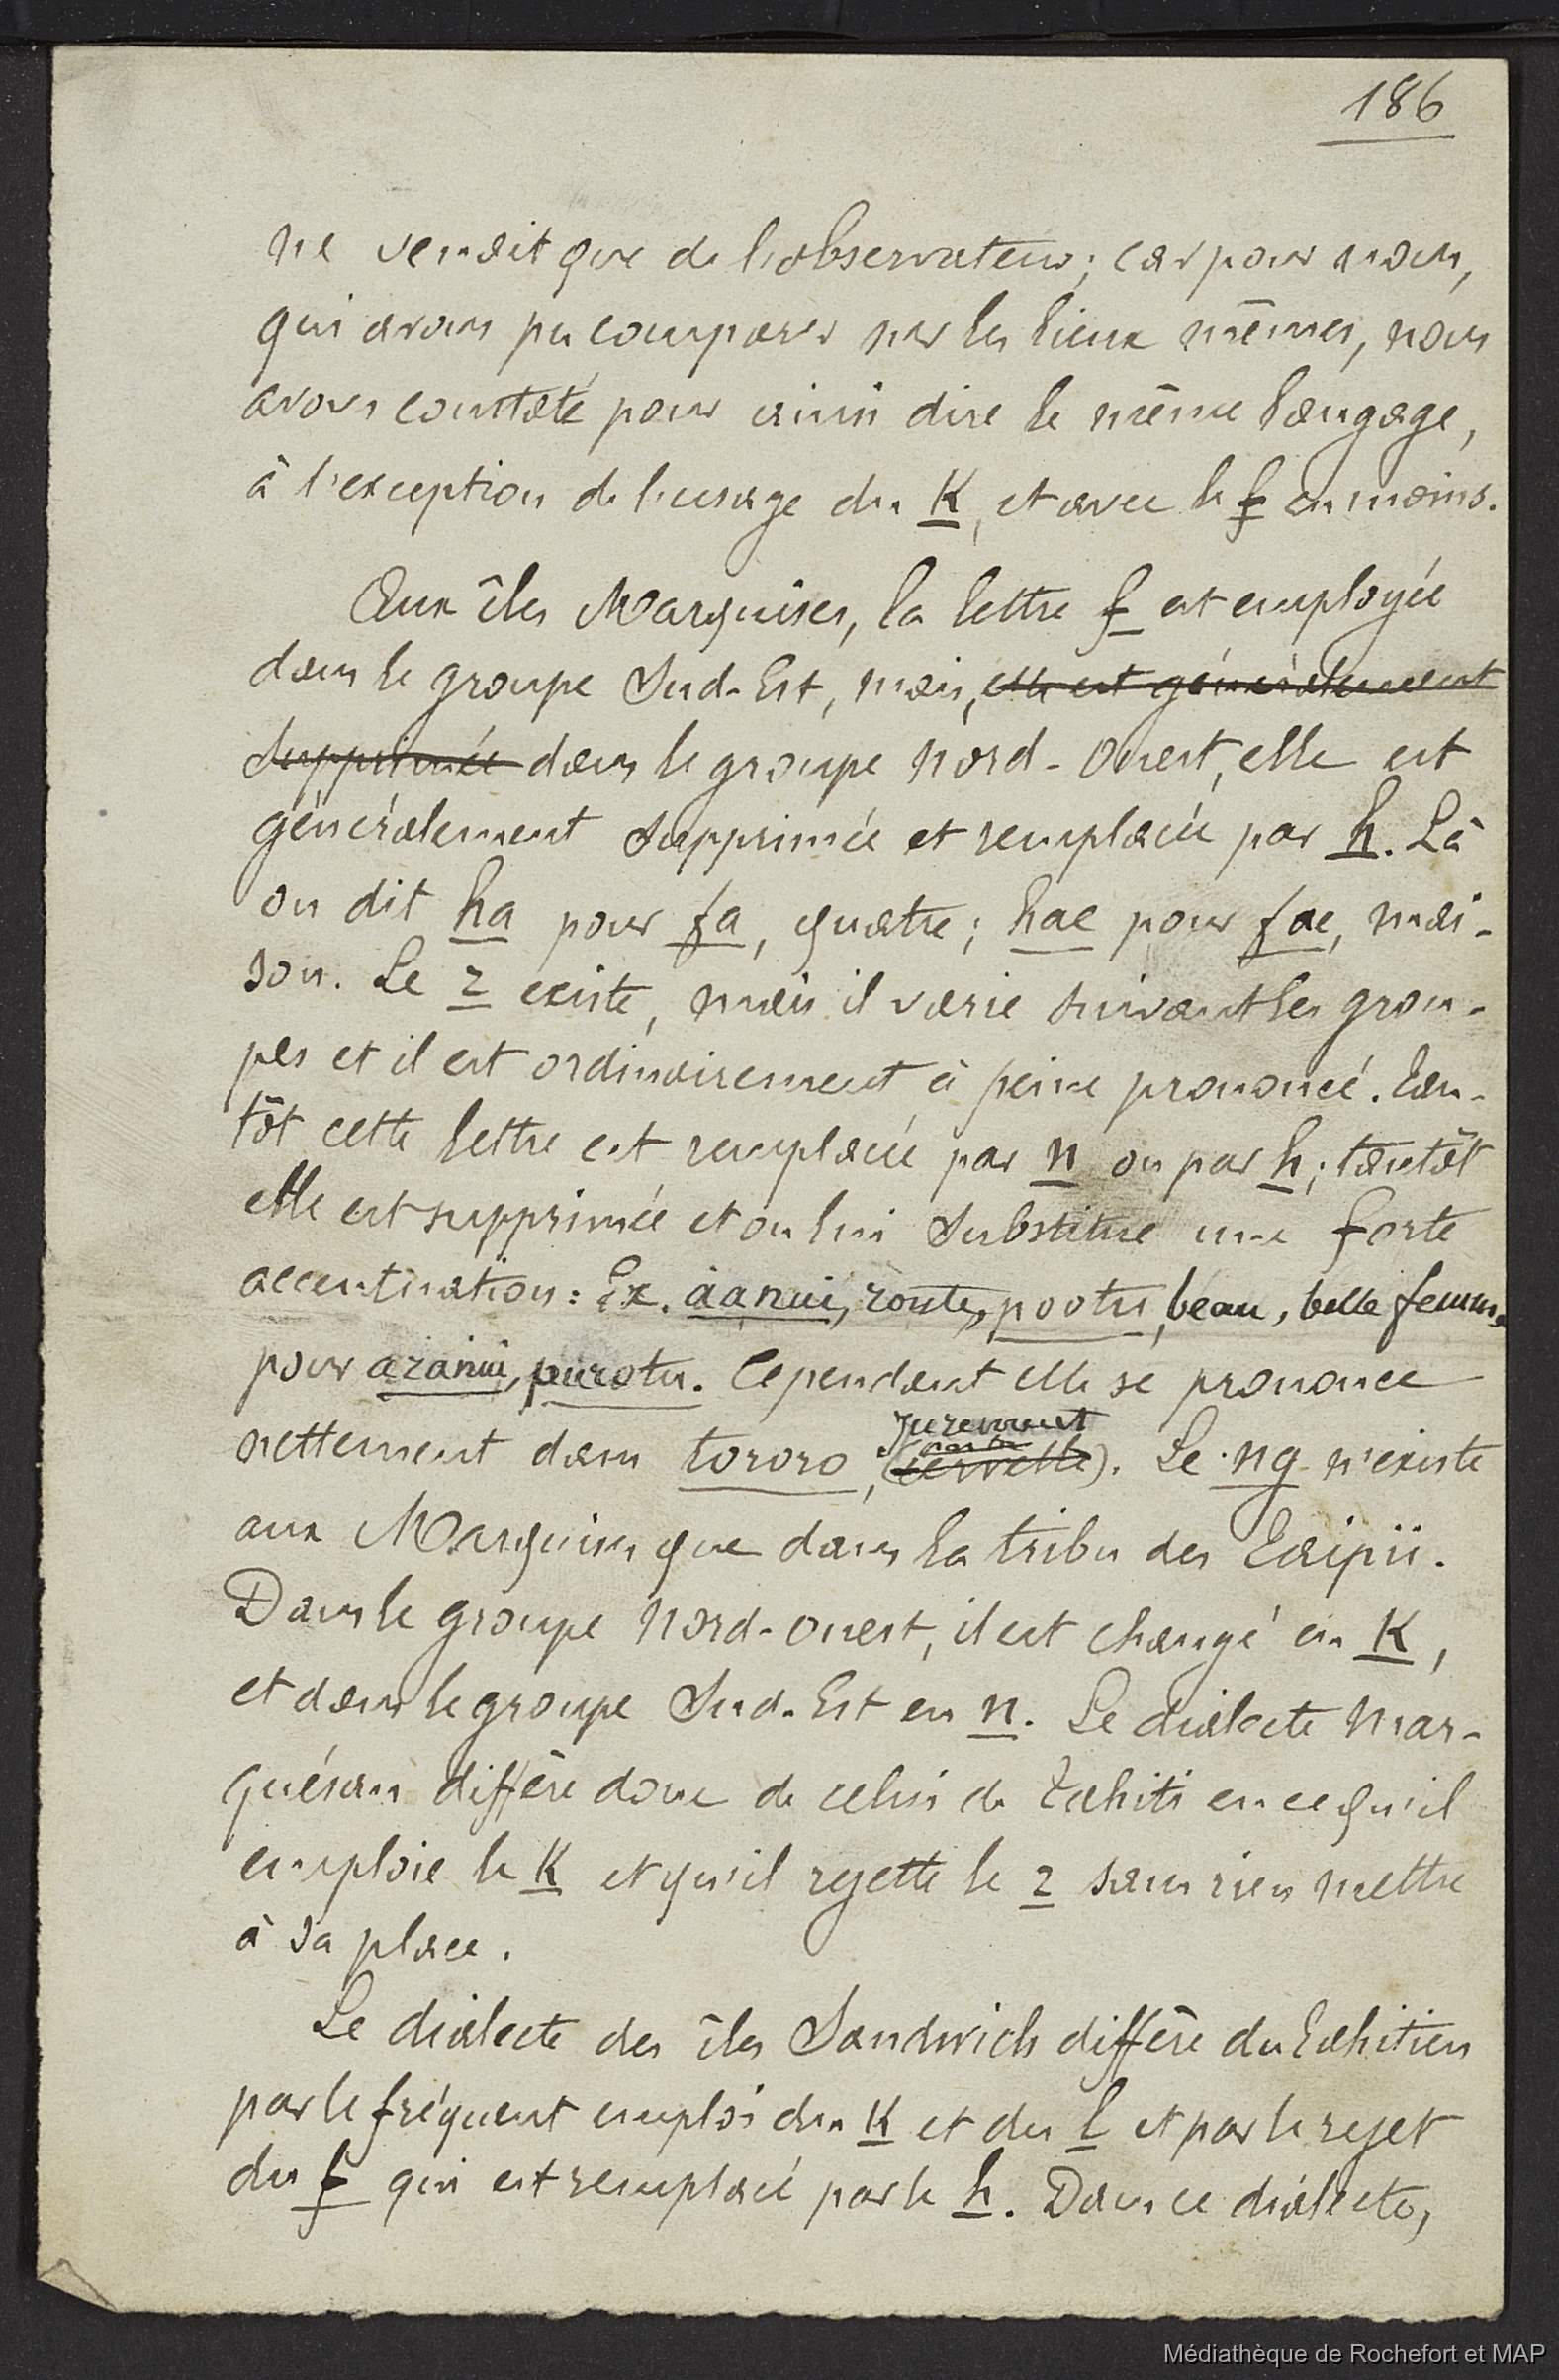 186
ne venait que de l'observateur; car pour nous,
qui avons pu comparer sur les lieux mêmes, nous
avons constaté pour ainsi dire le même langage,
à l'exception de l'usage du K, et avec le f en moins.
Aux îles Marquises, la lettre f est employée
dans le groupe Sud-Est, mais, elle est généralement
supprimée dans le groupe Nord-Ouest, elle est
généralement supprimée et remplacée par h. Là
on dit ha pour fa, quatre; hae pour fae, mai-
son. Le r existe, mais il varie suivant les grou-
pes et il est ordinairement à peine prononcé. Tan-
tôt cette lettre est remplacée par n ou par h; tantôt
elle est supprimée et on lui substitue une forte
accentuation: Ex. àanui, route, pootu, beau, belle femme,
pour aranui, purotu. Cependant elle se prononce
purement
nettement dans tororo, (cervelle). Le ng n'existe
aux Marquises que dans la tribu des Taïpii.
Dans le groupe Nord-ouest, il est changé en K,
et dans le groupe Sud-Est en n. Le dialecte Mar-
quésan diffère donc de celui de Tahiti en ce qu'il
emploie le K et qu'il rejette le r sans rien mettre
à sa place.
Le dialecte des îles Sandwich diffère du Tahitien
par le fréquent emploi du K et du l et par le rejet
du f qui est remplacé par le h. Dans ce dialecte,
Médiathèque de Rochefort et MAP